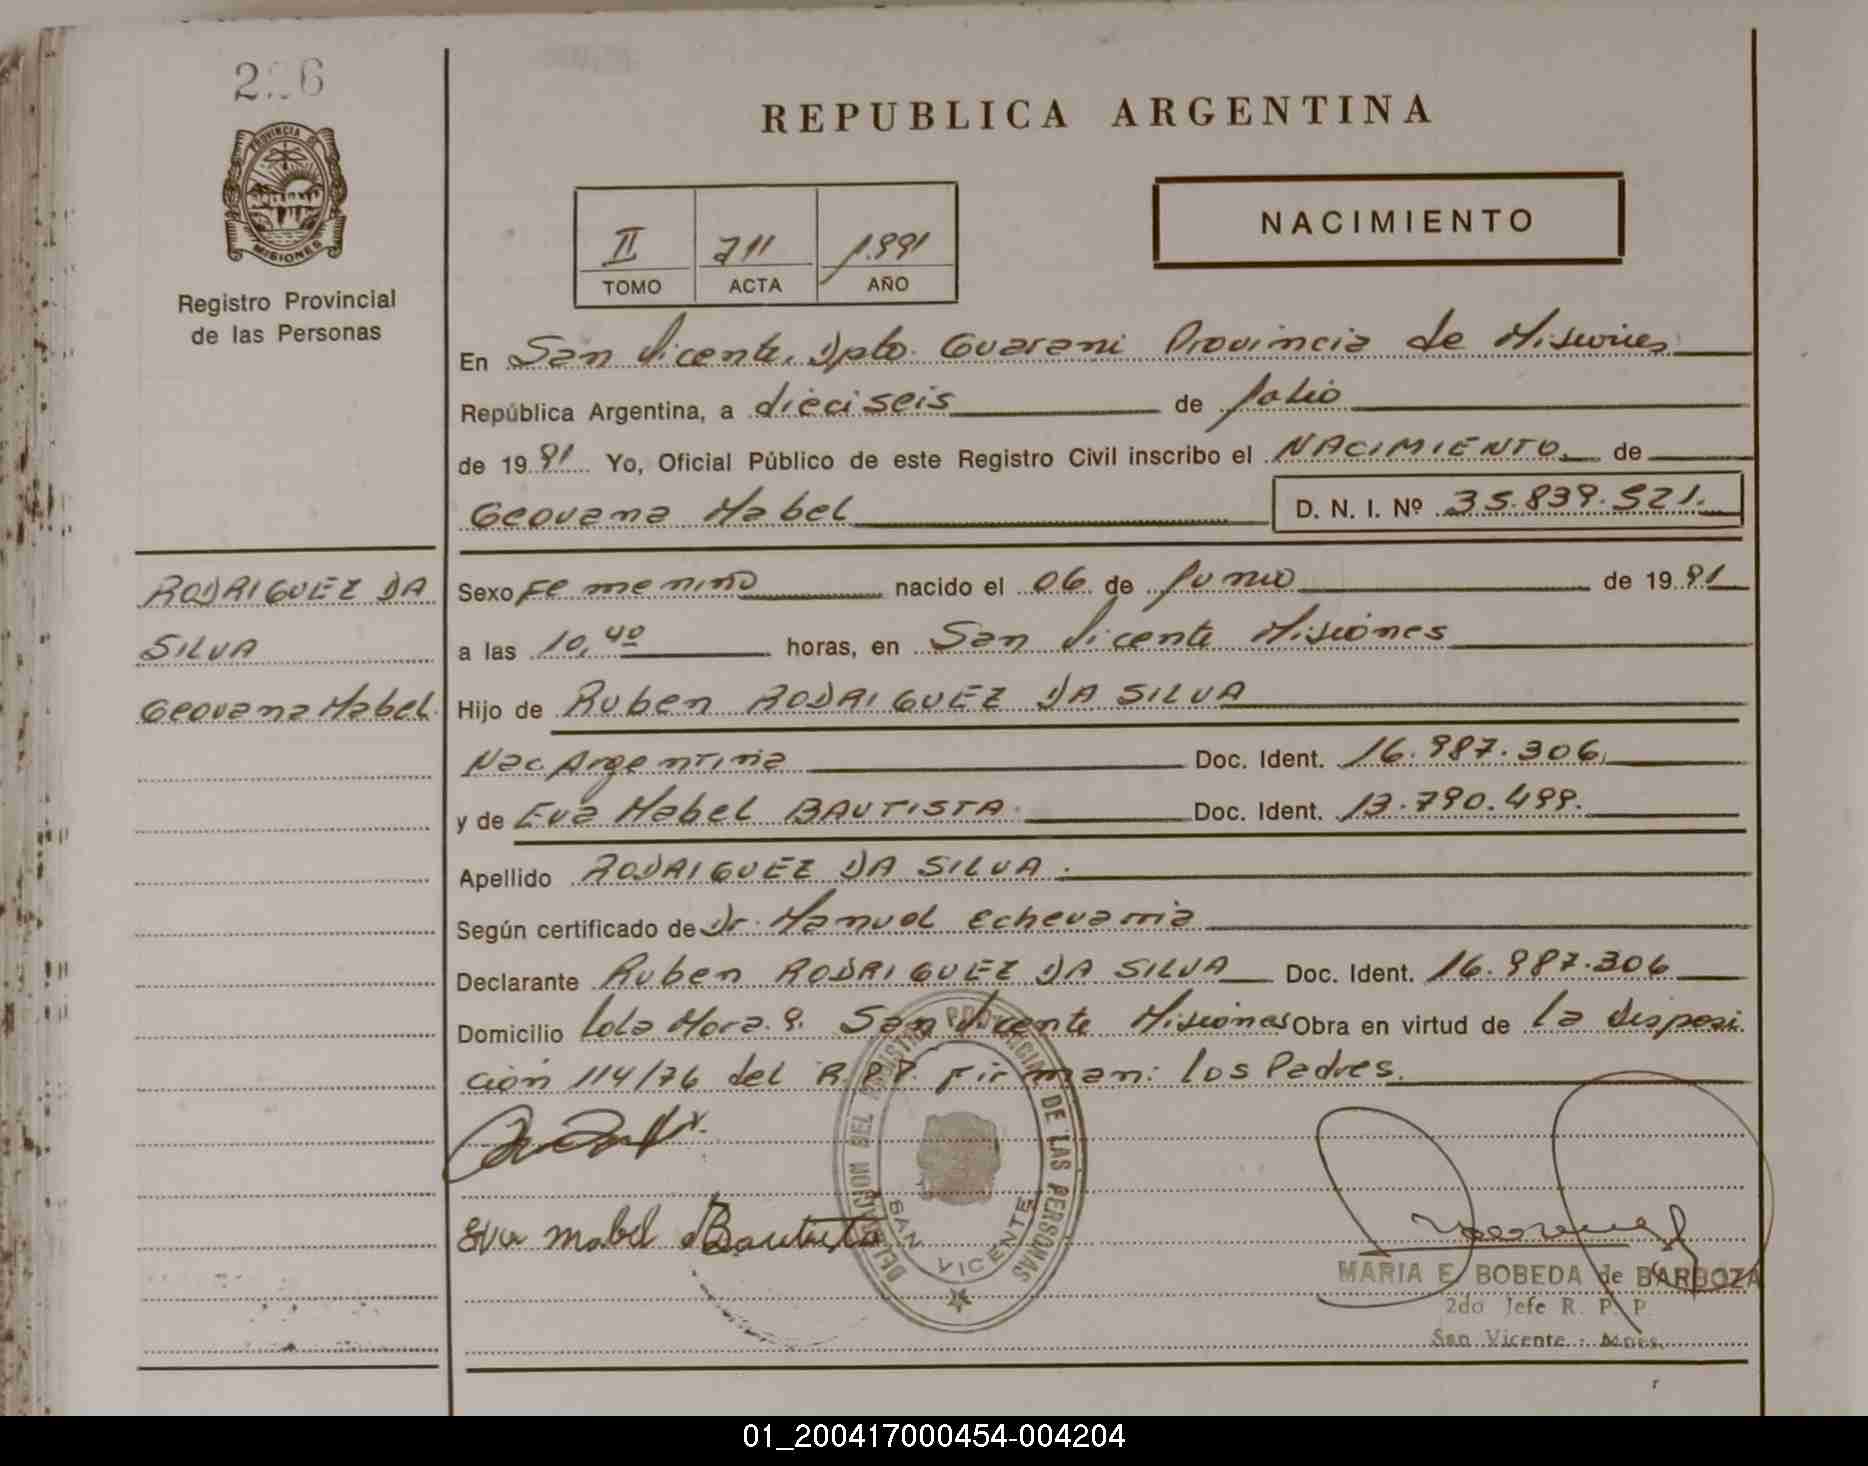 REPUBLICA ARGENTINA
PROVINCIA DE MISIONES
Registro Provincial
de las Personas
NACIMIENTO
II 711 1.991
TOMO ACTA AÑO
En San Vicente, Dpto. Guarani Provincia de Misiones
República Argentina, a dieciseis de Julio
de 1991 Yo, Oficial Público de este Registro Civil inscribo el NACIMIENTO de
Geovana Mabel D. N. I. Nº 35.839.521.
RODRIGUEZ DA
SILVA
Geovana Mabel.
Sexo Femenino nacido el 06 de Junio de 1991
a las 10,40 horas, en San Vicente Misiones
Hijo de Ruben RODRIGUEZ DA SILVA
Nac. Argentina Doc. Ident. 16.987.306,
y de Eva Mabel BAUTISTA. Doc. Ident. 13.790.499.
Apellido RODRIGUEZ DA SILVA.
Según certificado de Dr. Manuel Echevarria
Declarante Ruben RODRIGUEZ DA SILVA Doc. Ident. 16.987.306
Domicilio Lola Mora. 9. San Vicente Misiones Obra en virtud de la disposi
ción 114/76 del R.P.P. Firman: Los Padres.
Eva Mabel Bautista
DELEGACION DEL REGISTRO PROVINCIAL DE LAS PERSONAS
SAN VICENTE
MARIA E. BOBEDA de BARBOZA
2do Jefe R. P. P
San Vicente - Mnes.
01_200417000454-004204